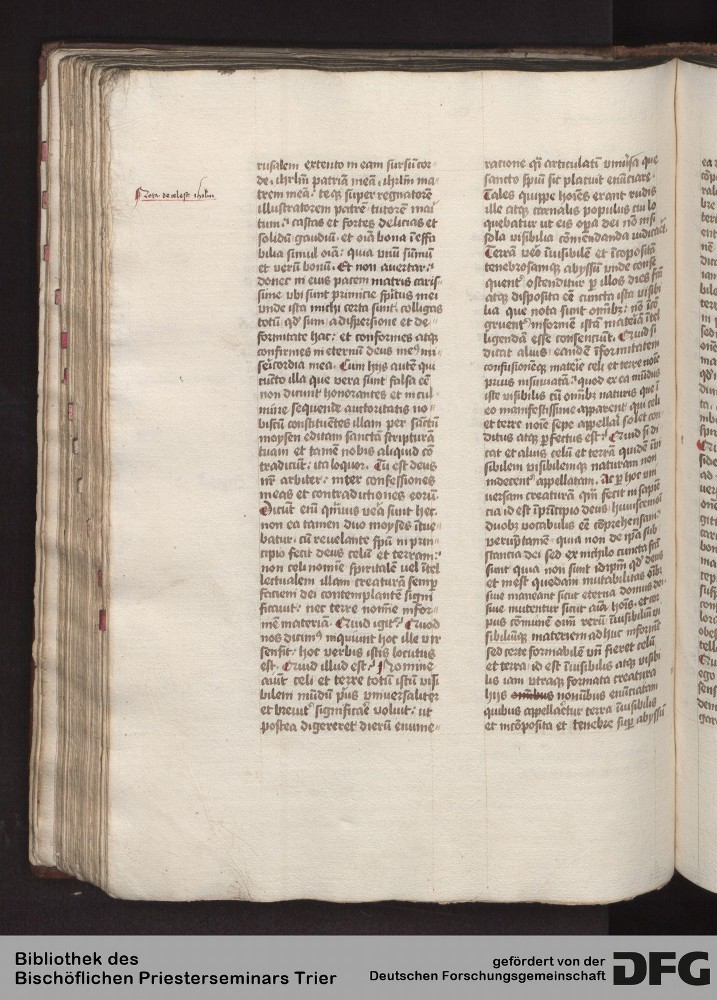 Nota de celesti ihrlm
rusalem extento in eam sursu cor-
de · ihrlm patria mea · ihrlm ma-
trem mea · teq super regnatore
illustratorem patre tutore mai
tum · castas et fortes delicias et
solidu gaudiu · et oia bona ineffa
bilia simul oia · quia vnu sumu
et veru bonu · Et non avertar ·
donec in eius pacem matris caris-
sime vbi sunt primicie spiritus mei
vnde ista michi certa sunt · colligas
totu qd sum a dispersione et de-
formitate hac · et conformes atq
confirmes in eternu deus meus mi-
sericordia mea · Cum hijs aute qui
cuncta illa que vera sunt falsa ee
non dicunt honorantes et in cul-
mine sequende auctoritatis no-
biscu constituentes illam per sanctu
moysen editam sancta scriptura
tuam et tame nobis aliquid co
tradicunt · ita loquor · Tu esto deus
nr arbiter · inter confessiones
meas et contradictiones eoru
Dicunt eni quivis vera sint hec
non ea tamen duo moyses intue
batur · cu revelante spu in prin-
cipio fecit deus celu et terram ·
non celi nomine spiritale vel intel
lectualem illam creatura semp
faciem dei contemplante signi
ficavit · nec terre nomine infor-
me materia · Quid igit Quod
nos dicim inquiunt hoc ille vir
sensit · hoc verbis istis locutus
est · Quid illud est · Nomine
aiut celi et terre totu istu visi
bilem mudu prius vniuersaliter
et breuit significare voluit · ut
postea digereret dieru enume-
ratione qi articulati vniuersa que
sancto spiui sic placuit enuciare ·
Tales quippe hoies erant rudis
ille atq carnalis populus cui lo
quebatur ut eis opa dei no nisi
sola visibilia comendanda iudicaret
Terra vero iuisibile et icoposita
tenebrosamq abyssu vnde conse
quent ostenditur p illos dies fcta
atq disposita ee cuncta ista visibi
lia que nota sunt omibz · no ico
gruent informe ista materia itel
ligenda esse consenciut · Quid si
dicat alius · eande iformitatem
confusioneq materie celi et terre noie
prius insinuata · quod ex ea mudus
iste visibilis cu omibz naturis que i
eo manifestissime apparent · qui celi
et terre noie sepe appellari solet con
ditus atq pfectus est · Quid si di
cat et alius celu et terra quide ivi
sibilem visibilemq naturam non
indecent appellatam · Ac p hoc uni
versam creatura qm fecit in sapien
cia id est iprincipio deus huiuscemoi
duobz vocabulis ee coprehensam
verumptame · quia non de ipsa sub
stancia dei sed ex nichilo cuncta fca
sunt quia non sunt idipm qd deus
et inest quedam mutabilitas oibz
siue maneant sicut eterna domus dei
siue mutentur sicut aia hois · et cor
pus comune oim reru iuisibiliu vi
sibiliuq materiem adhuc informe
sed certe formabile vn fieret celu
et terra · id est iuisibilis atq visibi
lis iam vtraq formata creatura
hijs omibus nominibus enuciatam
quibus appellaretur terra iuisibilis
et incoposita et tenebre sup abyssu
Bibliothek des
Bischöflichen Priesterseminars Trier
gefördert von der
Deutschen Forschungsgemeinschaft
DFG